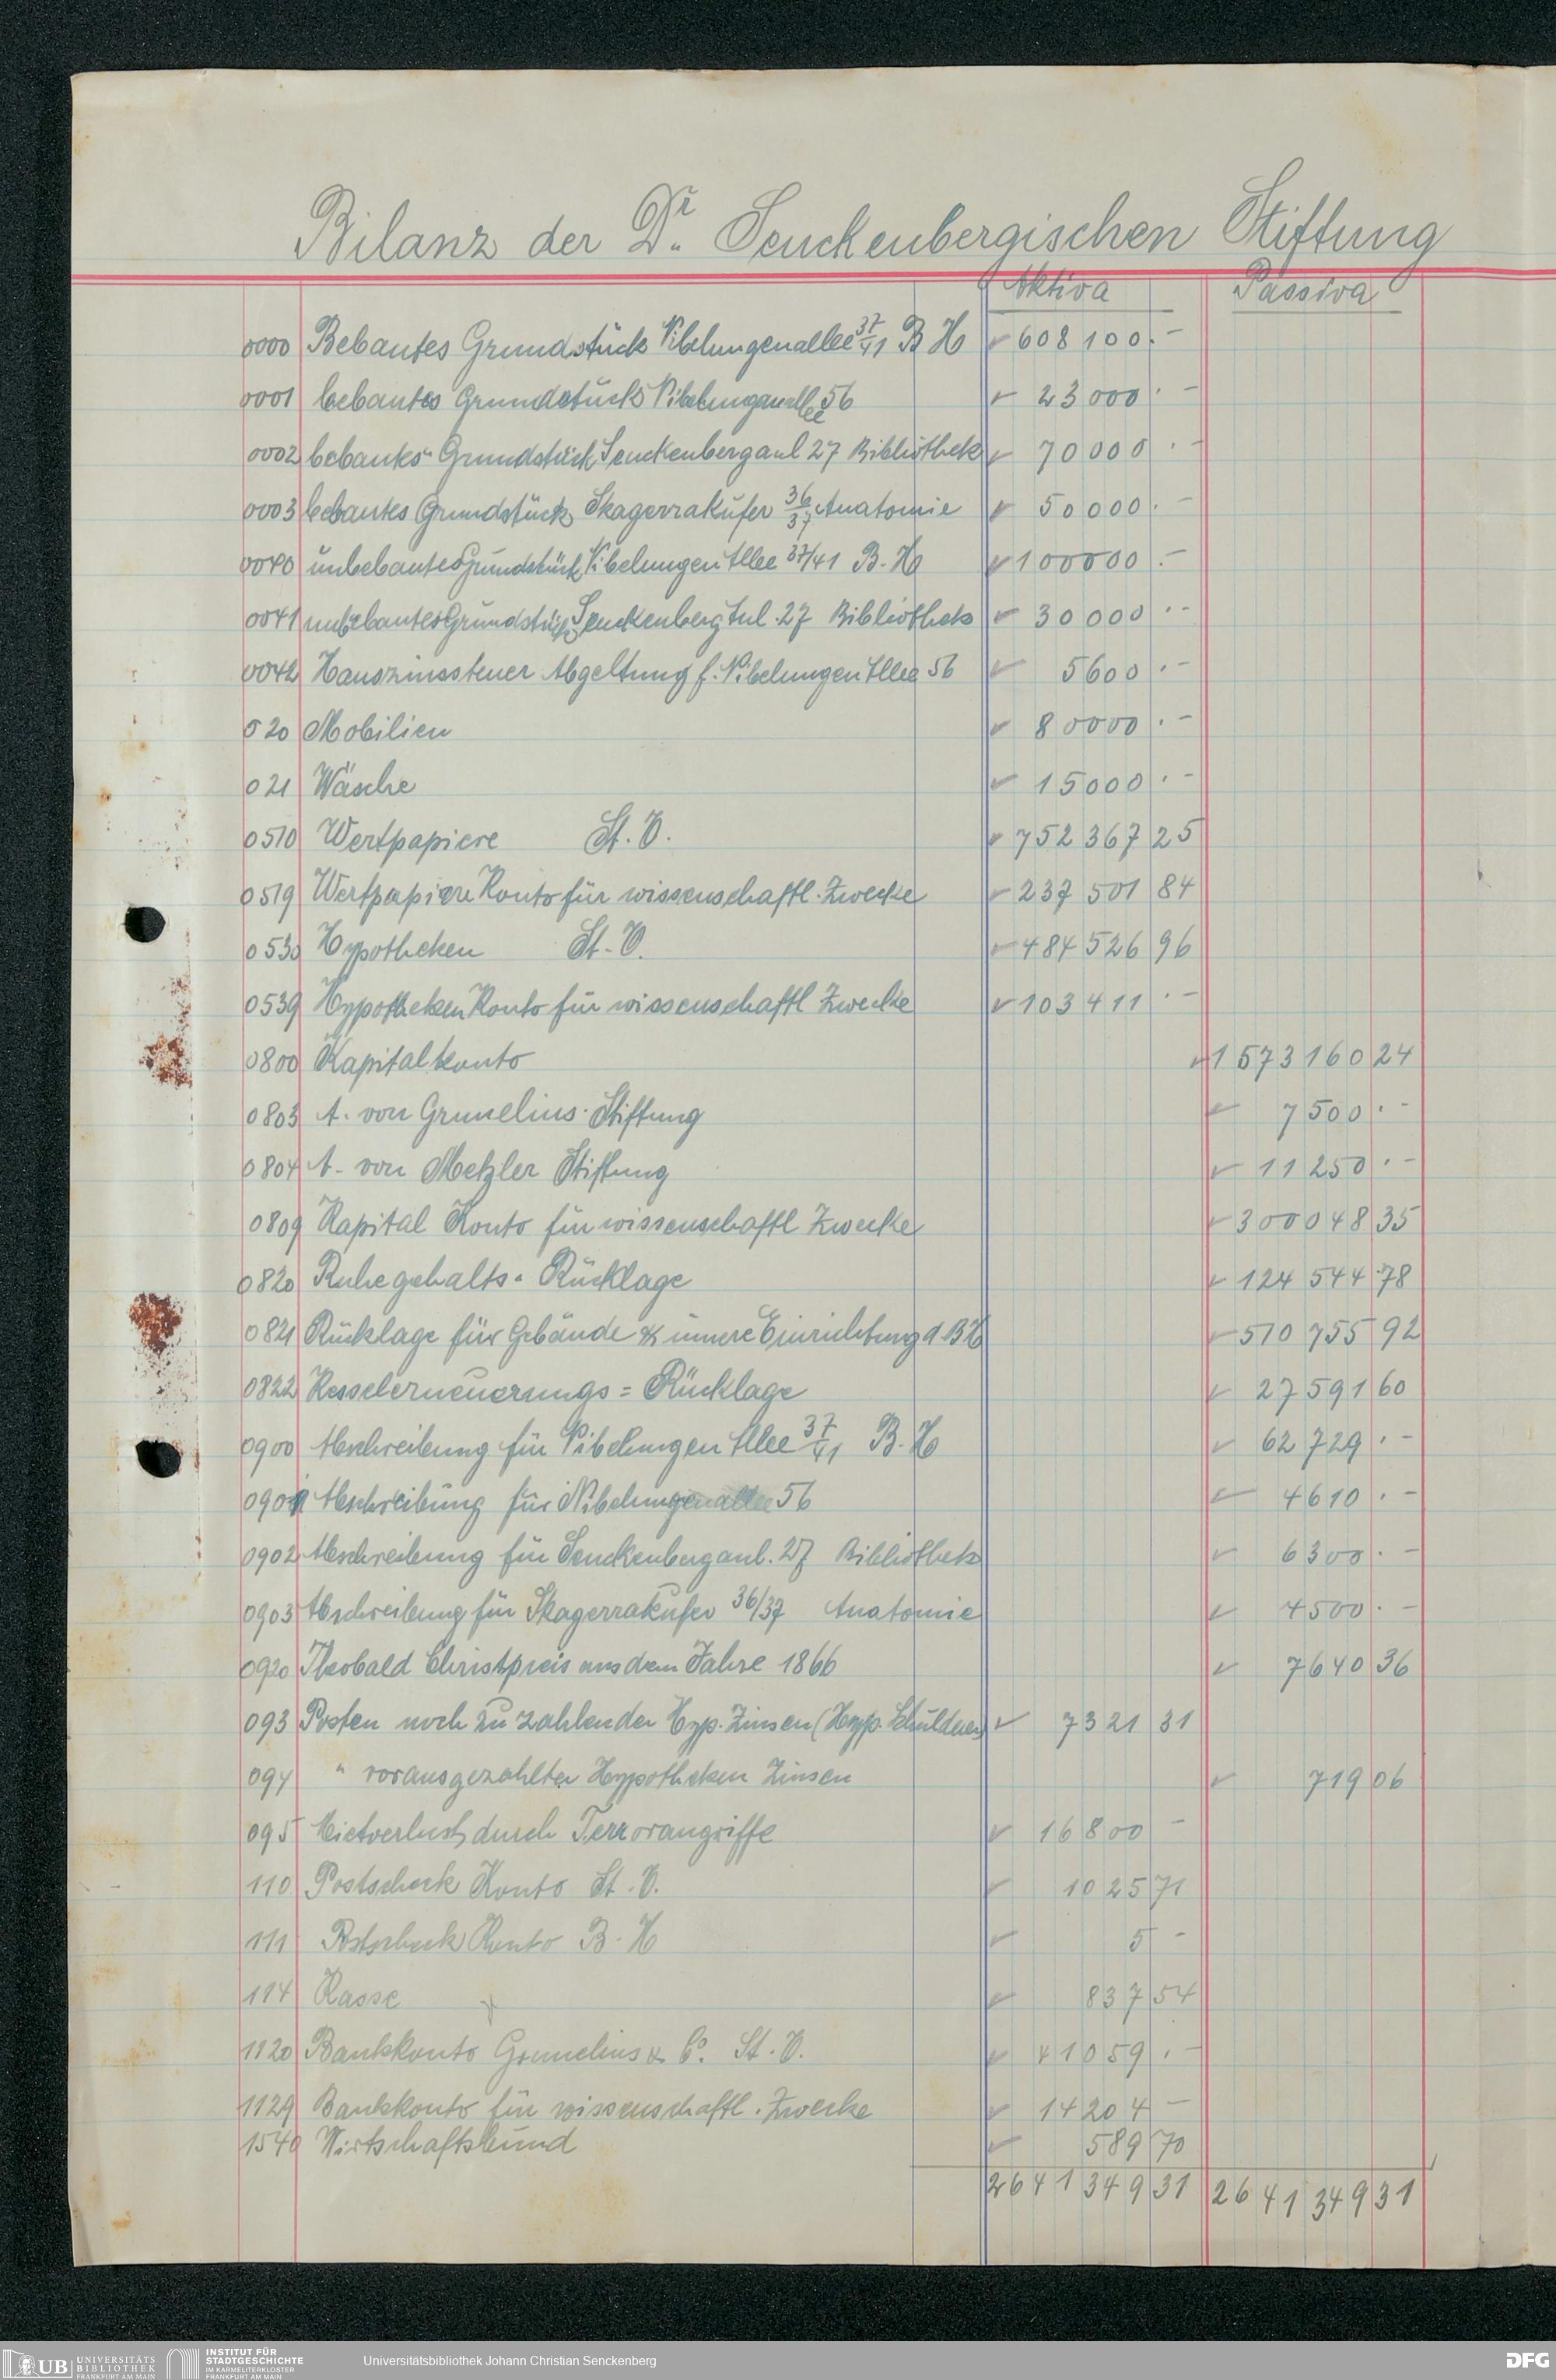 Bilanz der Dr. Senckenbergischen Stiftung
Aktiva Passiva
0000 Bebautes Grundstück Nibelungenallee 37/41 B H 608 100.-
0001 bebautes Grundstück Nibelungenallee 56 23 000.-
0002 bebautes Grundstück Senckenberganl 27 Bibliothek 70 000.-
0003 bebautes Grundstück Skagerrakufer 36/37 Anatomie 50 000.-
0040 unbebautes Grundstück Nibelungen Allee 37/41 B. H 100 000.-
0041 unbebautes Grundstück Senckenberg Anl. 27 Bibliothek 30 000.-
0042 Hauszinssteuer Abgeltung f. Nibelungen Allee 56 5600.-
020 Mobilien 80000.-
021 Wäsche 15000.-
0510 Wertpapiere St. V. 752 367 25
0519 Wertpapiere Konto für wissenschaftl. Zwecke 237 501 84
0530 Hypotheken St. V. 484 526 96
0539 Hypotheken Konto für wissenschaftl Zwecke 103 411.-
0800 Kapitalkonto 1573160 24
0803 A. von Grunelius Stiftung 7500.-
0804 A. von Metzler Stiftung 11250.-
0809 Kapital Konto für wissenschaftl Zwecke 300048 35
0820 Ruhegehalts-Rücklage 124 544 78
0821 Rücklage für Gebäude & innere Einrichtung d BH 510 755 92
0822 Kesselerneuerungs=Rücklage 27591 60
0900 Abschreibung für Nibelungen Allee 37/41 B. H 62 729.-
0901 Abschreibung für Nibelungenallee 56 4610.-
0902 Abschreibung für Senckenberganl. 27 Bibliothek 6300.-
0903 Abschreibung für Skagerrakufer 36/37 Anatomie 4500.-
0920 Theobald Christpreis aus dem Jahre 1866 7640 36
093 Posten noch zu zahlender Hyp. Zinsen (Hyp. Schuldner) 7321 31
094 " vorausgezahlter Hypotheken Zinsen 719 06
095 Mietverlust durch Terrorangriffe 16800 -
110 Postscheck Konto St. V. 1025 71
111 Postscheck Konto B. H 5 -
114 Kasse 837 54
1120 Bankkonto Grunelius & Co. St. V. 41059.-
1129 Bankkonto für wissenschaftl. Zwecke 14204 -
1540 Wirtschaftsbund 589 70
2641349 31 2641349 31
UB UNIVERSITÄTS
BIBLIOTHEK
FRANKFURT AM MAIN
INSTITUT FÜR
STADTGESCHICHTE
IM KARMELITERKLOSTER
FRANKFURT AM MAIN
Universitätsbibliothek Johann Christian Senckenberg
DFG